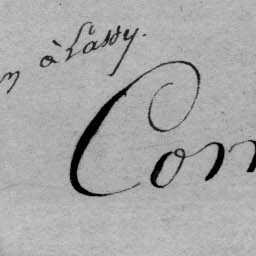 n à Lassy.
Con